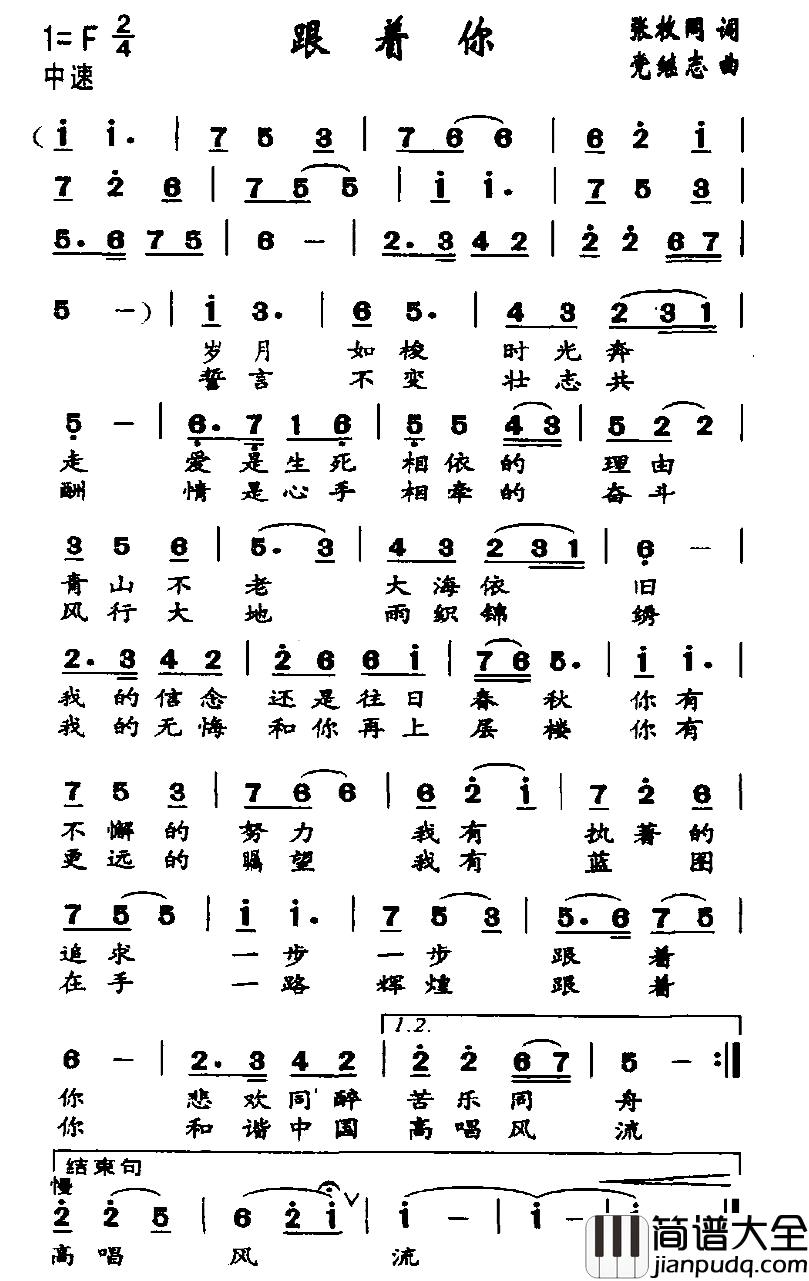 1=F 2/4 跟着你 张牧同 词
中速 党继志 曲
( i i. | 7 5 3 | 7 6 6 | 6 2 i |
7 2 6 | 7 5 5 | i i. | 7 5 3 |
5. 6 7 5 | 6 - | 2. 3 4 2 | 2 2 6 7 |
5 -) | i 3. | 6 5. | 4 3 2 3 1 |
岁月 如梭 时光奔
誓言 不变 壮志共
5 - | 6. 7 1 6 | 5 5 4 3 | 5 2 2 |
走 爱是生死 相依的 理由
酬 情是心手 相牵的 奋斗
3 5 6 | 5. 3 | 4 3 2 3 1 | 6 - |
青山不 老 大海依 旧
风行大 地 雨织锦 绣
2. 3 4 2 | 2 6 6 i | 7 6 5. | i i. |
我的信念 还是往日 春秋 你有
我的无悔 和你再上 层楼 你有
7 5 3 | 7 6 6 | 6 2 i | 7 2 6 |
不懈的 努力 我有 执著的
更远的 瞩望 我有 蓝图
7 5 5 | i i. | 7 5 3 | 5. 6 7 5 |
追求 一步 一步 跟着
在手 一路 辉煌 跟着
1.2.
6 - | 2. 3 4 2 | 2 2 6 7 | 5 - :|
你 悲欢同醉 苦乐同 舟
你 和谐中国 高唱风 流
结束句
慢
2 2 5 | 6 2 i ∨ | i - | i - | i - |
高唱 风 流
简谱大全
jianpudq.com